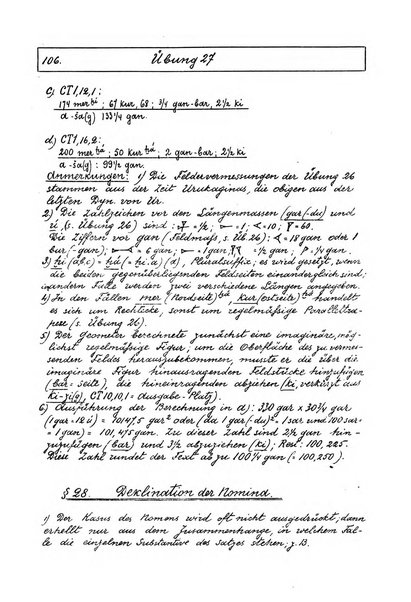 106. Übung 27
c) CT 1,12,1:
174 mer bi ; 67 kur, 68 ; 3/4 gan-bar, 2 1/2 ki
a-ša(g) 133 1/4 gan.
d) CT 1,16,2:
200 mer bá ; 50 kur bá ; 2 gan-bar ; 2 1/2 ki
a-ša(g) : 99 1/2 gan.
Anmerkungen: 1) Die Feldervermessungen der Übung 26
stammen aus der Zeit Urukaginas, die obigen aus der
letzten Dyn. von Ur.
2) Die Zahlzeichen vor den Längenmassen (gar(-du) und
ú (s. Übung 26) sind : = 1/2 ; = 1; = 10; = 60.
Die Ziffern vor gan (Feldmaß, s. Üb. 26): = 18 gan oder 1
bur(-gan); = 6 gan; = 1 gan, = 1/2 gan, = 1/4 gan.
Pluralsuffix; es wird gesetzt, wenn
die beiden gegenüberliegenden Feldseiten einander gleich sind;
in andern Fälle werden zwei verschiedene Längen angegeben.
4) In den Fällen mer (Nordseite) bá kur (Ostseite) bá handelt
es sich um Rechtecke, sonst um regelmäßige Parallltra-
peze (s. Übung 26).
5) Der Geometer berechnete zunächst eine imaginäre, mög-
lichst regelmäßige Figur; um die Oberfläche des zu vermes-
senden Feldes herauszubekommen, musste er die über die
imaginäre Figur hinausragenden Feldstücke hinzufügen
(bar-seite), die hineinragenden abziehen (ki, verkürzt aus
ki-zi(g), CT 10,10,1 = Ausgabe-Platz).
6) Ausführung der Berechnung in a): 330 gar x 30 3/4 gar
(1 gar = 12 ú) = 10147,5 gar² oder (da 1 gar(-du)² = 1 sar und 100 sar
= 1 gan) = 101,475 gan. Zu dieser Zahl sind 2 1/4 gan hin-
zuzufügen (bar) und 3 1/2 abzuziehen (ki); Rest: 100,225.
Diese Zahl rundet der Text ab zu 100 1/4 gan (= 100,250).
§ 28. Deklination der Nomina.
1) Der Kasus des Nomens wird oft nicht ausgedrückt, dann
erhellt nur aus dem Zusammenhange, in welchem Fal-
le die einzelnen Substantive des Satzes stehen; z.B.